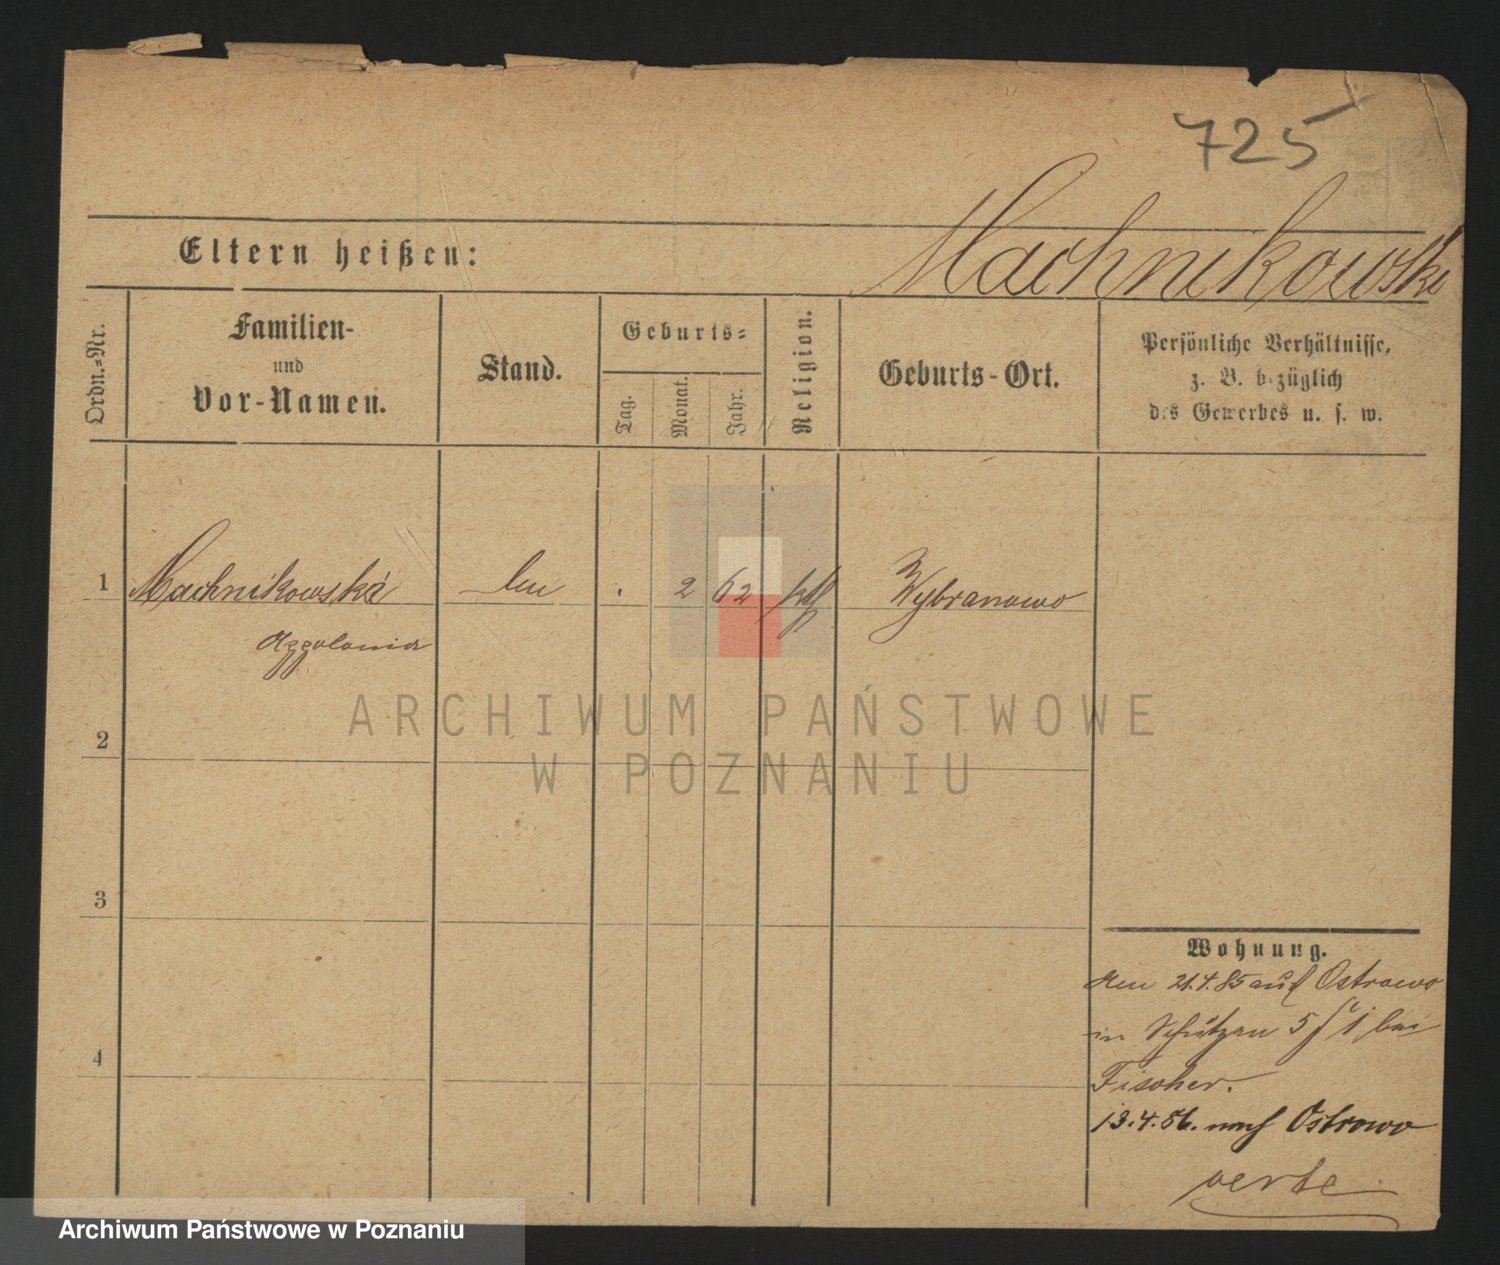 725
Machnikowski
Eltern heißen:
Ordn.-Nr.
Familien-
und
Vor-Namen.
Stand.
Geburts-
Tag.
Monat.
Jahr.
Religion.
Geburts-Ort.
Persönliche Verhältnisse,
z. B. bezüglich
des Gewerbes u. s. w.
1 Machnikowska 2 62 kth Wybranowo
Appolonia
2
3
4
Wohnung.
21.4.85 auf Ostrowo
in Schützen 5 I bei
Fischer.
13.4.86. nach Ostrowo
verte
ARCHIWUM PAŃSTWOWE
W POZNANIU
Archiwum Państwowe w Poznaniu